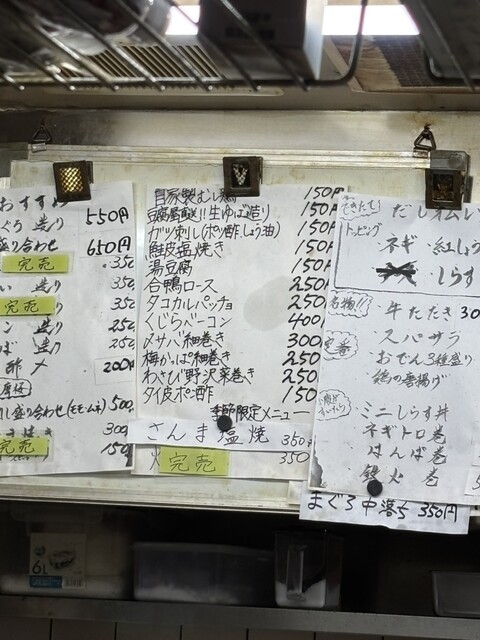 おすすめ
ぐろ 造り 550円
盛り合わせ 650円
完売 350
い 造り 350
完売 り 350
ン 造り 250
ば 造り 250
酢〆 200円
厚揚
し盛り合わせ(モモ・ムネ) 500
き 300
完売 150
自家製むし鶏 150円
豆腐屋直送!!生ゆば造り 150円
ガツ刺し(ポン酢、しょう油) 150円
鮭皮塩焼き 150円
湯豆腐 150円
合鴨ロース 250
タコカルパッチョ 250
くじらベーコン 400円
〆サバ細巻き 300
梅かっぱ細巻き 250
わさび野沢菜巻き 250
タイ皮ポン酢 150
季節限定メニュー
さんま塩焼 350円
完売 350
できたて!
だし
トッピング
ネギ・紅しょう
・しらす
名物!!
・牛たたき 30
定番
・スパサラ
・おでん3種盛り
・鶏の唐揚げ
・ミニしらす丼
ネギトロ巻
・鉄火 巻
まぐろ中落ち 350円
6L